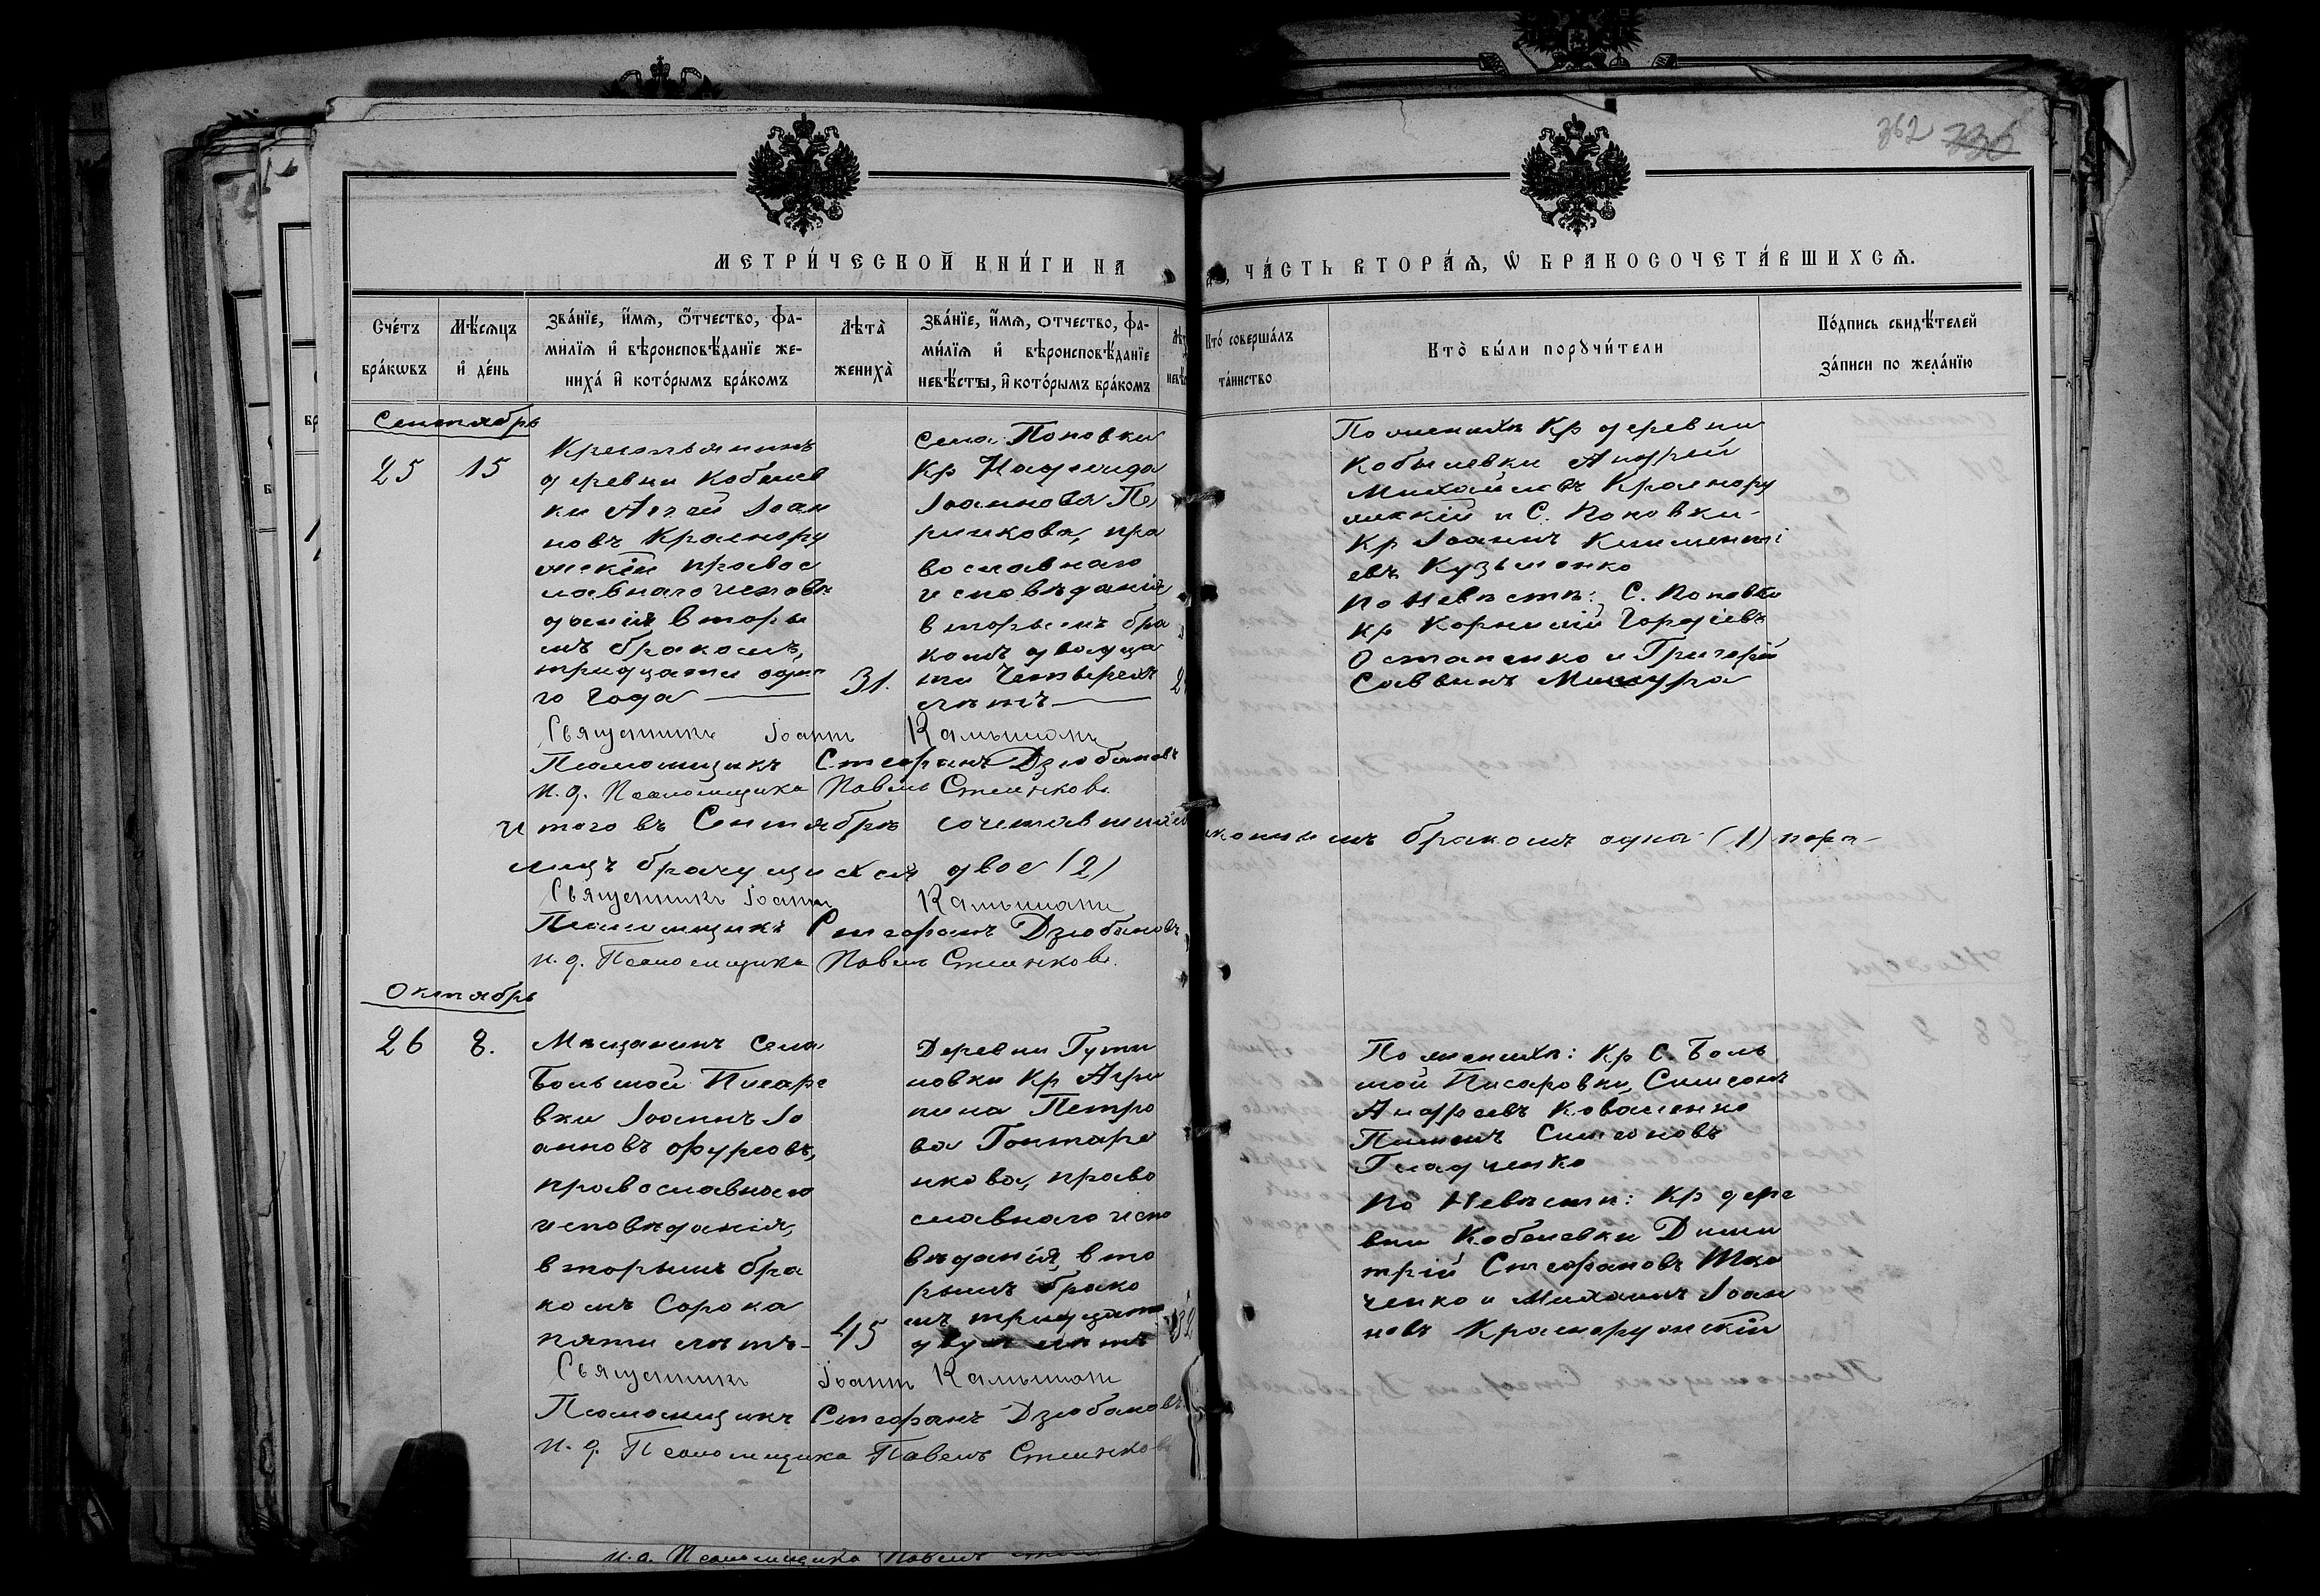 362 336
МЕТРИ́ЧЕСКОЙ КНИ́ГИ НА
ЧА́СТЬ ВТОРА́Ѧ, Ѡ БРАКОСОЧЕТА́ВШИХСѦ.
Сче́тъ бра́кѡвъ
Мѣ́сѧцъ и҆ де́нь
Зва́нїе, и҆́мѧ, ѻ҆́тчество, фа-
ми́лїѧ и҆ вѣроисповѣ́данїе же-
ниха́ и҆ кото́рымъ бра́комъ
Лѣта̀ жениха̀
Зва́нїе, и҆́мѧ, ѻтчество, фа-
ми́лїѧ и҆ вѣроисповѣ́данїе
невѣ́сты, и҆ кото́рымъ бра́комъ
Кто̀ соверша́лъ
та́инство
Кто̀ бы́ли порꙋчи́тели
По́дпись свидѣ́телей
за́писи по жела́нїю
Сентябрь
25
15
Крестьянинъ
деревни Кобылев
ки Аггей Іоан
новъ Краснору
жскій правос
лавнаго исповѣ
данія вторы
мъ бракомъ,
тридцати одно
го года
31.
Села Поповки
Кр Надежда
Іоаннова Пе
ришкова, пра
вославнаго
исповѣданія
вторымъ бра
комъ двадца
ти четырехъ
лѣтъ
По женихѣ Кр деревни
Кобылевки Андрей
Михайловъ Краснору
жскій и С. Поповки
Кр Іоаннъ Климентi
евъ Кузьменко
По Невѣстѣ: С. Поповки
Кр Корнилій Гордіевъ
Остапенко и Григорій
Саввинъ
Священникъ Іоаннъ
Псаломщикъ Стефанъ Дзюбановъ
и. д. Псаломщика Павелъ
Итого въ Сентябрѣ сочетавшихся
законнымъ бракомъ одна (1) пара
лицъ брачущихся двое (2)
Священникъ Іоаннъ
Псаломщикъ Стефанъ Дзюбановъ
и. д. Псаломщика Павелъ
Октябрь
26
8.
Мѣщанинъ Села
Большой Писаре
вки Іоаннъ Іо
анновъ Фурсовъ,
православнаго
исповѣданія,
вторымъ бра
комъ Сорока
пяти лѣтъ
45
Деревни Гути
новки Кр Агри
пина Петро
ва Гонтаре
нкова, право
славнаго испо
вѣданія, вто
рымъ брако
мъ тридцати
двухъ лѣтъ
32
По женихѣ: Кр С. Боль
шой Писаровки, Симеонъ
Андреевъ Коваленко
Пименъ Симеоновъ
Гладченко
По Невѣстѣ: Кр дере
вни Кобелевки Дими
трій Стефановъ Тка
ченко и Михаилъ Іоан
новъ Красноружскій
Священникъ Іоаннъ
Псаломщикъ Стефанъ Дзюбановъ
и. д. Псаломщика Павелъ
и. д. Псаломщика Павелъ